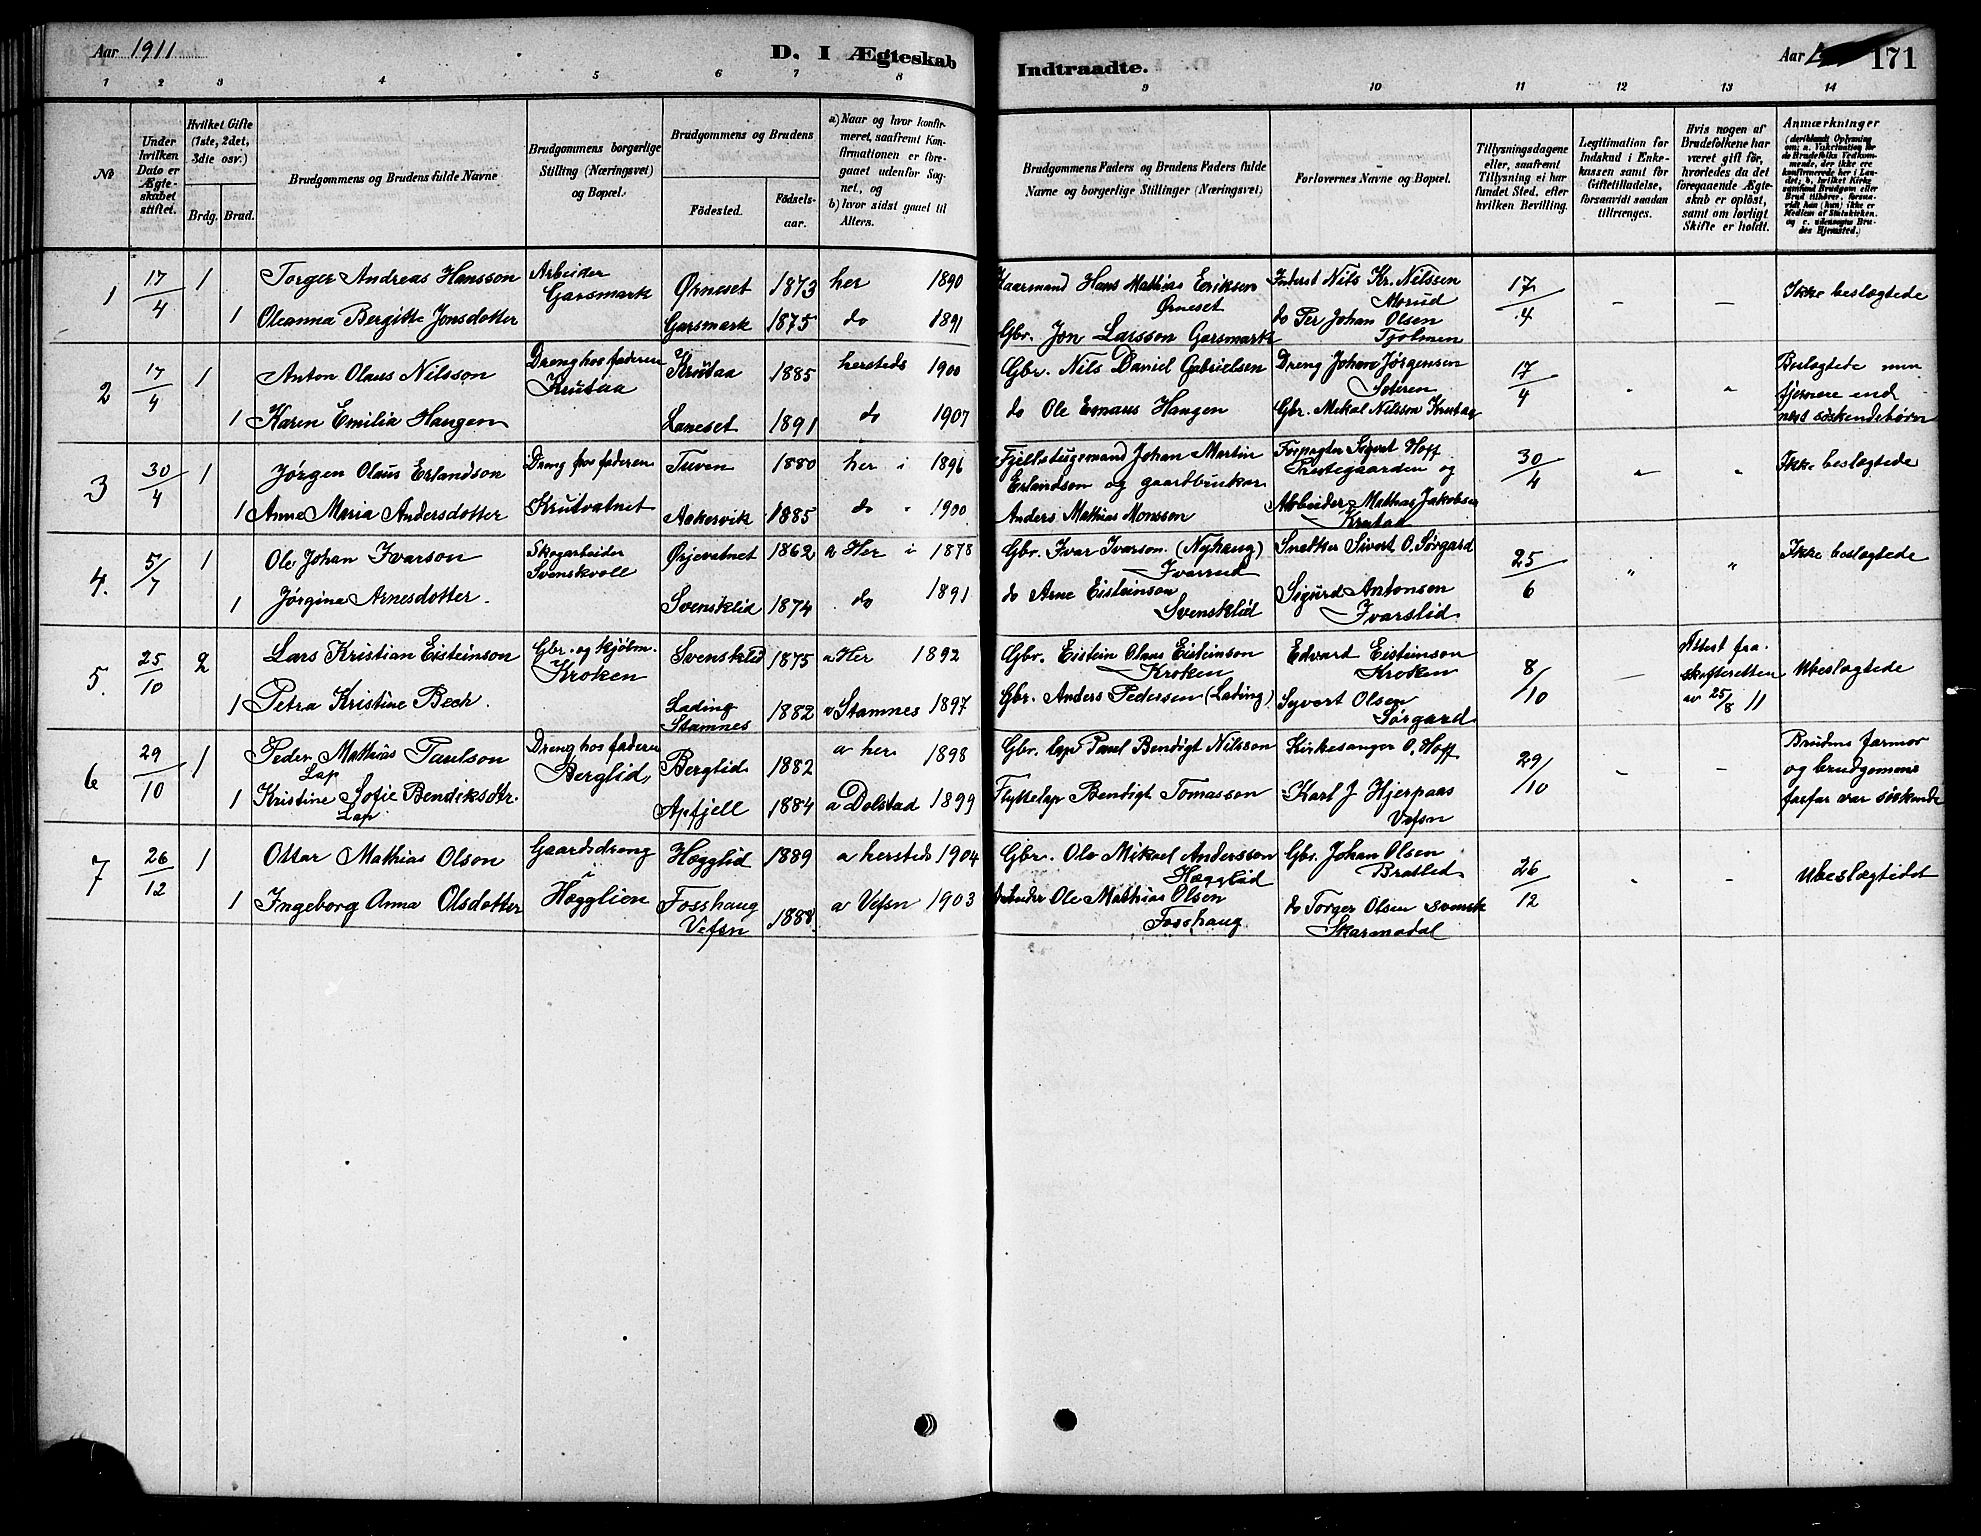 Aar 1911
D. I Ægteskab
Indtraadte.
Aar
171
1 2 3 4 5 6 7 8 9 10 11 12 13 14
No
Under hvilken Dato er Ægteskabet stiftet.
Hvilket Gifte (1ste, 2det, 3die osv.)
Brdg. Brud.
Brudgommens og Brudens fulde Navne
Brudgommens borgerlige Stilling (Næringsvei) og Bopæl.
Brudgommens og Brudens
Fødested.
Fødsels-aar.
a) Naar og hvor konfirmeret, saafremt Konfirmationen er foregaaet udenfor Sognet, og
b) hvor sidst gaaet til Alters.
Brudgommens Faders og Brudens Faders fulde Navne og borgerlige Stillinger (Næringsvei)
Forlovernes Navne og Bopæl.
Tillysningsdagene eller, saafremt Tillysning ei har fundet Sted, efter hvilken Bevilling.
Legitimation for Indskud i Enkekassen samt for Giftetilladelse, forsaavidt saadan tiltrænges.
Hvis nogen af Brudefolkene har været gift før, hvorledes da det foregaaende Ægteskab er opløst, samt om lovligt Skifte er holdt.
Anmærkninger
(deriblandt Oplysning om: a. Vaksination for de Brudefolks Vedkommende, der ikke ere konfirmerede her i Landet, b. hvilket Kirkesamfund Brudgom eller Brud tilhører, forsaavidt han (hun) ikke er Medlem af Statskirken, og c. udensogns Brudes Hjemsted.)
1 17/4 1 Torger Andreas Hansson Arbeider Garsmark Ørneset 1873 her 1890 Haarmand Hans Mathias Eriksen Ørneset Inderst Nils Kr. Nilssen Morud 17/4 - - Ikke beslægtede
1 Oleanna Bergitte Jonsdotter Garsmark 1875 do 1891 Gbr. Jon Larsson Garsmark do Per Johan Olsen Tjolmen
2 17/4 1 Anton Olaus Nilsson Dreng hos faderen Krutaa Krutaa 1885 hersteds 1900 Gbr. Nils Daniel Gabrielsen Dreng Johan Jørgensen Soteren 17/4 " " Beslægtede men fjernere end
1 Karen Emilia Haugen Laneset 1891 do 1907 do Ole Emaus Haugen Gbr. Mekal Nilsson Krutaa næst søskendebørn
3 30/4 1 Jørgen Olaus Erlandson Dreng hos faderen Tuven 1880 her i 1896 Fjellstugemand Johan Martin Erlandsen og gaardbruker Forpagter Sivert Hoff Prestegaarden og 30/4 " " Ikke beslægtede
1 Anne Maria Andersdotter Krutvatnet Aakervik 1885 do " 1900 Anders Mathias Monsson Arbeider Mathias Jakobsen Krutaa
4. 5/7 1 Ole Johan Ivarson Skogarbeider Svenskvoll Ørjevatnet 1862 a Her i 1878 Gbr. Ivar Ivarson (Nyhaug) Ivarrud Snedker Sivert O. Sørgard 25/6 " " Ikke beslægtede
1 Jørgine Arnesdotter. Svensklid 1874 do 1891 do Arne Eisteinson Svensklid Sigurd Antonsen Ivarslid
5. 25/10 2 Lars Kristian Eisteinson Gbr. og kjøbm. Kroken Svensklid 1875 a Her 1892 Gbr. Eistein Olaus Eisteinson Kroken Edvard Eisteinson Kroken 8/10 - Attest fra skifteretten av 25/8 11 Ubeslægtede
1 Petra Kristine Bech. Lading Stamnes 1882 a Stamnes 1897 Gbr. Anders Pedersen (Lading) Syvert Olsen Sørgard
6 29/10 1 Peder Mathias Paulson Lap Dreng hos faderen Berglid Berglid 1882 a her 1898 Gbr. lap Paul Bendigt Nilsson Kirkesanger O. Hoff 29/10 - - Brudens farmor og brudgomens
1 Kristine Sofie Bendiksdtr. Lap Apfjell 1884 a Dolstad 1899 Flyttelap Bendigt Tomasson Karl J Hjerpaas Vefsn farfar var søskende
7 26/12 1 Ottar Mathias Olson Gaardsdreng i Hægglien Hægglid 1889 a hersteds 1904 Gbr. Ole Mikael Andersson Hægglid Gbr. Johan Olsen Bratlid 26/12 " - Ubeslægtedet
1 Ingeborg Anna Olsdotter Fosshaug Vefsn 1888 a Vefsn 1903 Arbeider Ole Mathias Olsen Fosshaug do Torger Olsen svensk Skarmodal